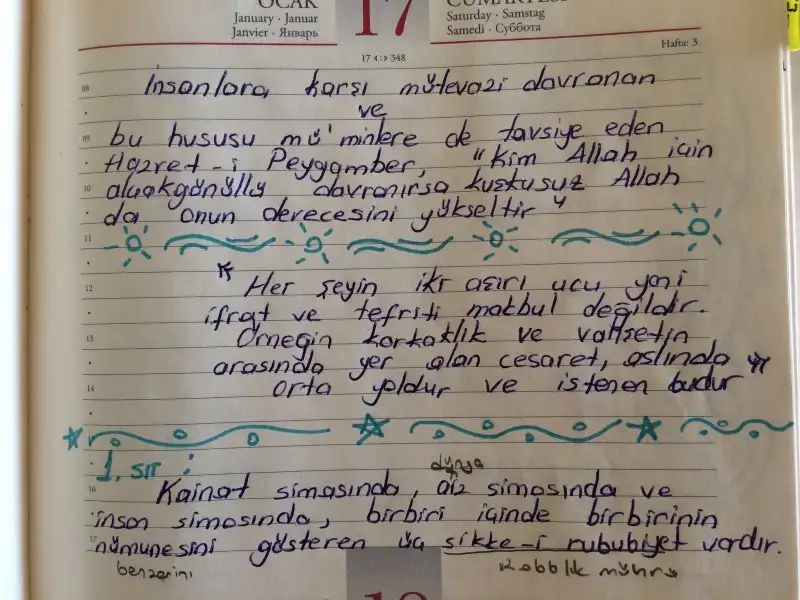 OCAK
January · Januar
Janvier · Январь
17
CUMARTESİ
Saturday · Samstag
Samedi · Суббота
17 <:> 348
Hafta: 3
08
İnsanlara karşı mütevazi davranan
ve
09
bu hususu mü'minlere de tavsiye eden
Hazret-i Peygamber, "Kim Allah için
10
alçakgönüllü davranırsa kuşkusuz Allah
da onun derecesini yükseltir"
11
12
Her şeyin iki aşırı ucu yani
ifrat ve tefriti makbul değildir.
13
Örneğin korkaklık ve vahşetin
arasında yer alan cesaret, aslında
14
orta yoldur ve istenen budur
1. sır :
dünya
16
Kainat simasında, arz simasında ve
insan simasında, birbiri içinde birbirinin
17
nümunesini gösteren üç sikke-i rububiyet vardır.
benzerini
Rabblik mührü
18